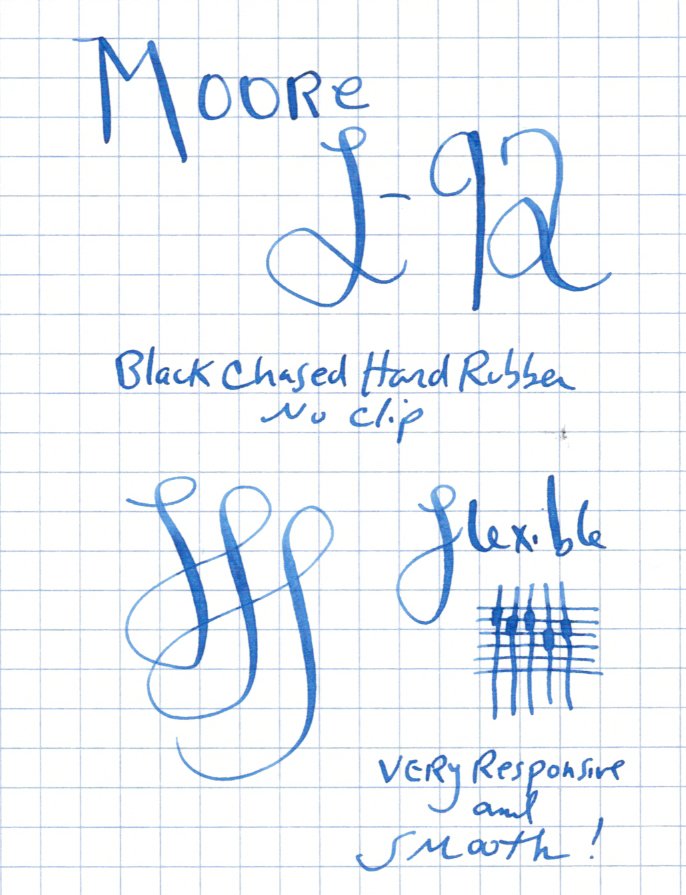 Moore
L-92
Black Chased Hard Rubber
No Clip
flexible
Very Responsive
and
Smooth!